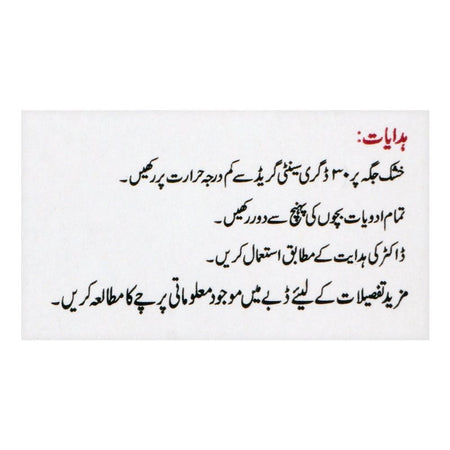 ہدایات:
خشک جگہ پر ۳۰ ڈگری سینٹی گریڈ سے کم درجہ حرارت پر رکھیں۔
تمام ادویات بچوں کی پہنچ سے دور رکھیں۔
ڈاکٹر کی ہدایت کے مطابق استعمال کریں۔
مزید تفصیلات کے لیئے ڈبے میں موجود معلوماتی پرچے کا مطالعہ کریں۔